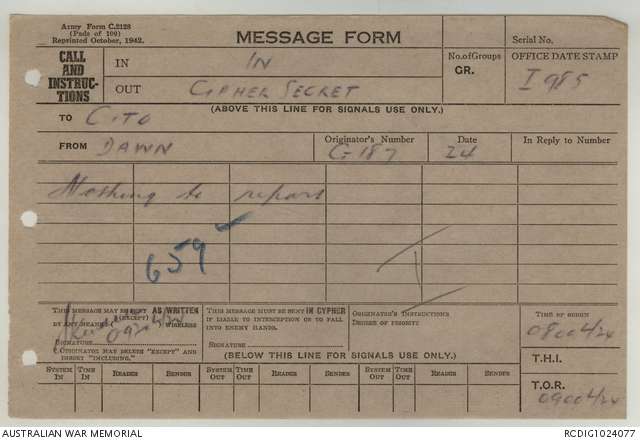 Army Form C.2128
(Pads of 100)
Reprinted October, 1942.
MESSAGE FORM
Serial No.
CALL AND INSTRUC-TIONS
IN IN
OUT CIPHER SECRET
No. of Groups GR.
OFFICE DATE STAMP
I 985
(ABOVE THIS LINE FOR SIGNALS USE ONLY.)
TO C.TO
FROM DAWN
Originator's Number G-187
Date 24
In Reply to Number
Nothing to report
659
THIS MESSAGE MAY BE SENT AS WRITTEN
(EXCEPT)
BY ANY MEANS WIRELESS
SIGNATURE
ORIGINATOR MAY DELETE "EXCEPT" AND
INSERT "INCLUDING."
THIS MESSAGE MUST BE SENT IN CYPHER
IF LIABLE TO INTERCEPTION OR TO FALL
INTO ENEMY HANDS.
SIGNATURE
ORIGINATOR'S INSTRUCTIONS
DEGREE OF PRIORITY
TIME OF ORIGIN
0800/24
T.H.I.
T.O.R.
0900/24
(BELOW THIS LINE FOR SIGNALS USE ONLY.)
SYSTEM IN TIME IN READER SENDER SYSTEM OUT TIME OUT READER SENDER SYSTEM OUT TIME OUT READER SENDER
AUSTRALIAN WAR MEMORIAL
RCDIG1024077